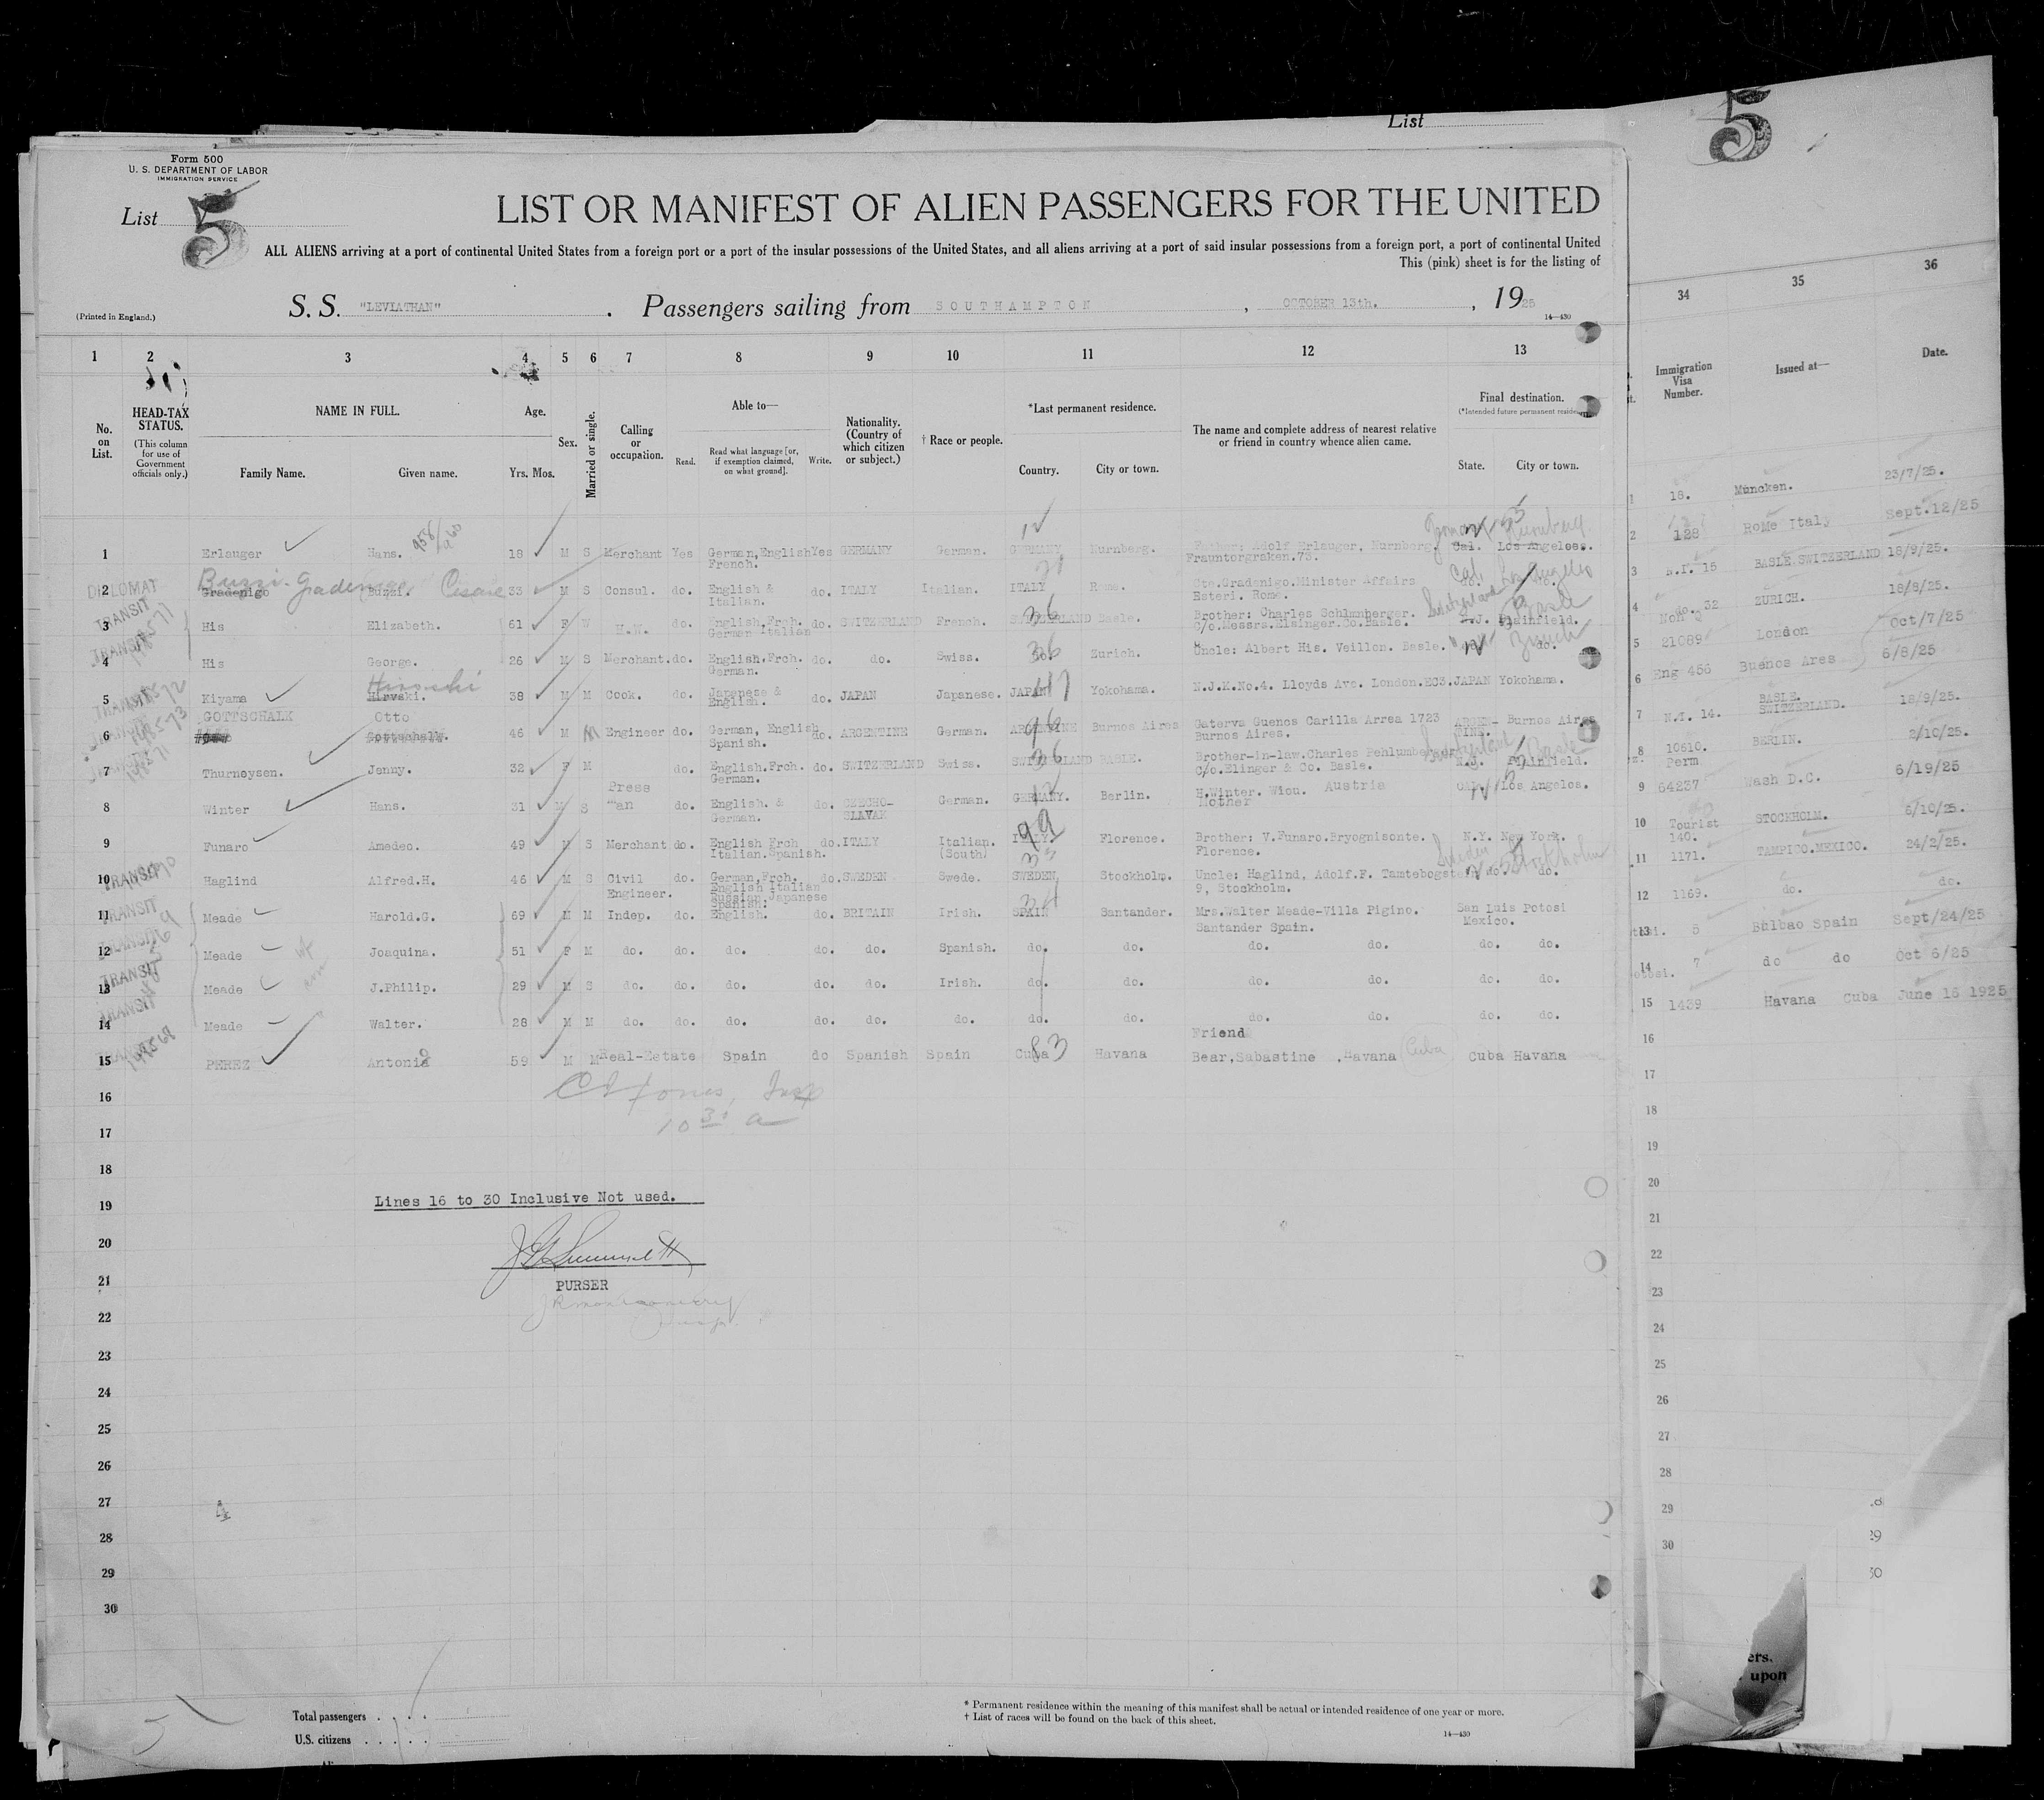 List
5
Form 500
U. S. DEPARTMENT OF LABOR
IMMIGRATION SERVICE
List 5
LIST OR MANIFEST OF ALIEN PASSENGERS FOR THE UNITED
ALL ALIENS arriving at a port of continental United States from a foreign port or a port of the insular possessions of the United States, and all aliens arriving at a port of said insular possessions from a foreign port, a port of continental United
This (pink) sheet is for the listing of
(Printed in England.)
S. S. "LEVIATHAN" . Passengers sailing from SOUTHAMPTON , OCTOBER 13th. , 1925
14—430
1 2 3 4 5 6 7 8 9 10 11 12 13
No. on List.
HEAD-TAX STATUS.
(This column for use of Government officials only.)
NAME IN FULL.
Family Name. Given name.
Age.
Yrs. Mos.
Sex.
Married or single.
Calling or occupation.
Able to—
Read. Read what language [or, if exemption claimed, on what ground]. Write.
Nationality. (Country of which citizen or subject.)
† Race or people.
*Last permanent residence.
Country. City or town.
The name and complete address of nearest relative or friend in country whence alien came.
Final destination.
State. City or town.
1 Erlauger Hans. 18 M S Merchant Yes German,English Yes GERMANY German. GERMANY Nurnberg. Father: Adolf Erlauger, Nurnberg. Cal. Los Angeloes.
French. Frauntorgraken.73.
DIPLOMAT
2 Gradenigo Buzzi-Gradenigo Buzzi. Cesare 33 M S Consul. do. English & do. ITALY Italian. ITALY Rome. Cte.Gradenigo.Minister Affairs
Italian. Esteri. Rome.
TRANSIT
3 His Elizabeth. 61 F W H.W. do. English,Frch. do. SWITZERLAND French. SWITZERLAND Basle. Brother: Charles Schlumberger. N.J. Plainfield.
German Italian C/o.Messrs.Elsinger.Co.Basle.
4 His George. 26 M S Merchant. do. English.Frch. do. do. Swiss. do. Zurich. Uncle: Albert His. Veillon. Basle. do.
German.
5 Kiyama Hirvski. Hiroshi 38 M M Cook. do. Japanese & do. JAPAN Japanese. JAPAN Yokohama. N.J.K.No.4. Lloyds Ave. London.EC3. JAPAN Yokohama.
English.
GOTTSCHALK Otto
6 Gottschalk. 46 M M Engineer do. German, English do. ARGENTINE German. ARGENTINE Burnos Aires Caterva Guenos Carilla Arrea 1723 ARGEN- Burnos Aires
Spanish. Burnos Aires. TINE.
7 Thurneysen. Jenny. 32 F M do. English.Frch. do. SWITZERLAND Swiss. SWITZERLAND BASLE. Brother-in-law.Charles N.J. Plainfield.
German. c/o.Elinger & Co. Basle.
Press
8 Winter Hans. 31 M S "an do. English. & do. CZECHO- German. GERMANY. Berlin. H.Winter. Wiou. Austria Los Angelos.
German. SLAVAK Mother
9 Funaro Amedeo. 49 M S Merchant do. English Frch do. ITALY Italian. ITALY. Florence. Brother: V.Funaro.Bryognisonte. N.Y. New York.
Italian.Spanish. (South) Florence.
TRANSIT
10 Haglind Alfred.H. 46 M S Civil do. German,Frch. do. SWEDEN Swede. SWEDEN, Stockholm. Uncle: Haglind, Adolf.F. do. do.
Engineer. English Italian 9, Stockholm.
Russian Japanese
Spanish:
TRANSIT
11 Meade Harold.G. 69 M M Indep. do. English. do. BRITAIN Irish. SPAIN Santander. Mrs.Walter Meade-Villa Pigino. San Luis Potosi
Santander Spain. Mexico.
TRANSIT
12 Meade Joaquina. 51 F M do. do. do. do. do. Spanish. do. do. do. do. do. do.
TRANSIT
13 Meade J.Philip. 29 M S do. do. do. do. do. Irish. do. do. do. do. do. do.
TRANSIT
14 Meade Walter. 28 M M do. do. do. do. do. do. do. do. do. do. do. do.
Friend
15 PEREZ Antonio 59 M M Real-Estate Spain do Spanish Spain Cuba Havana Bear,Sabastine ,Havana Cuba Cuba Havana
16
10 30 a
17
18
19 Lines 16 to 30 Inclusive Not used.
20
21 PURSER
22
23
24
25
26
27
28
29
30
Total passengers . . . .
U.S. citizens . . . . .
* Permanent residence within the meaning of this manifest shall be actual or intended residence of one year or more.
† List of races will be found on the back of this sheet.
14—430
34 35 36
Immigration Visa Number. Issued at— Date.
1 18. Muncken. 23/7/25.
2 128 Rome Italy Sept.12/25
3 N.I. 15 BASLE.SWITZERLAND 18/9/25.
4 do. 32 ZURICH. 18/8/25.
5 21089 London Oct/7/25
6 Eng 456 Buenos Ares 6/8/25
7 N.I. 14. BASLE. SWITZERLAND. 18/9/25.
8 10610. BERLIN. 2/10/25.
Perm
9 64237 Wash D.C. 6/19/25
10 Tourist 140. STOCKHOLM. 6/10/25.
11 1171. TAMPICO.MEXICO. 24/2/25.
12 1169. do. do.
13 5 Bilbao Spain Sept/24/25
14 7 do do Oct 6/25
15 1439 Havana Cuba June 16 1925
16
17
18
19
20
21
22
23
24
25
26
27
28
29
30
29
30
ers.
upon